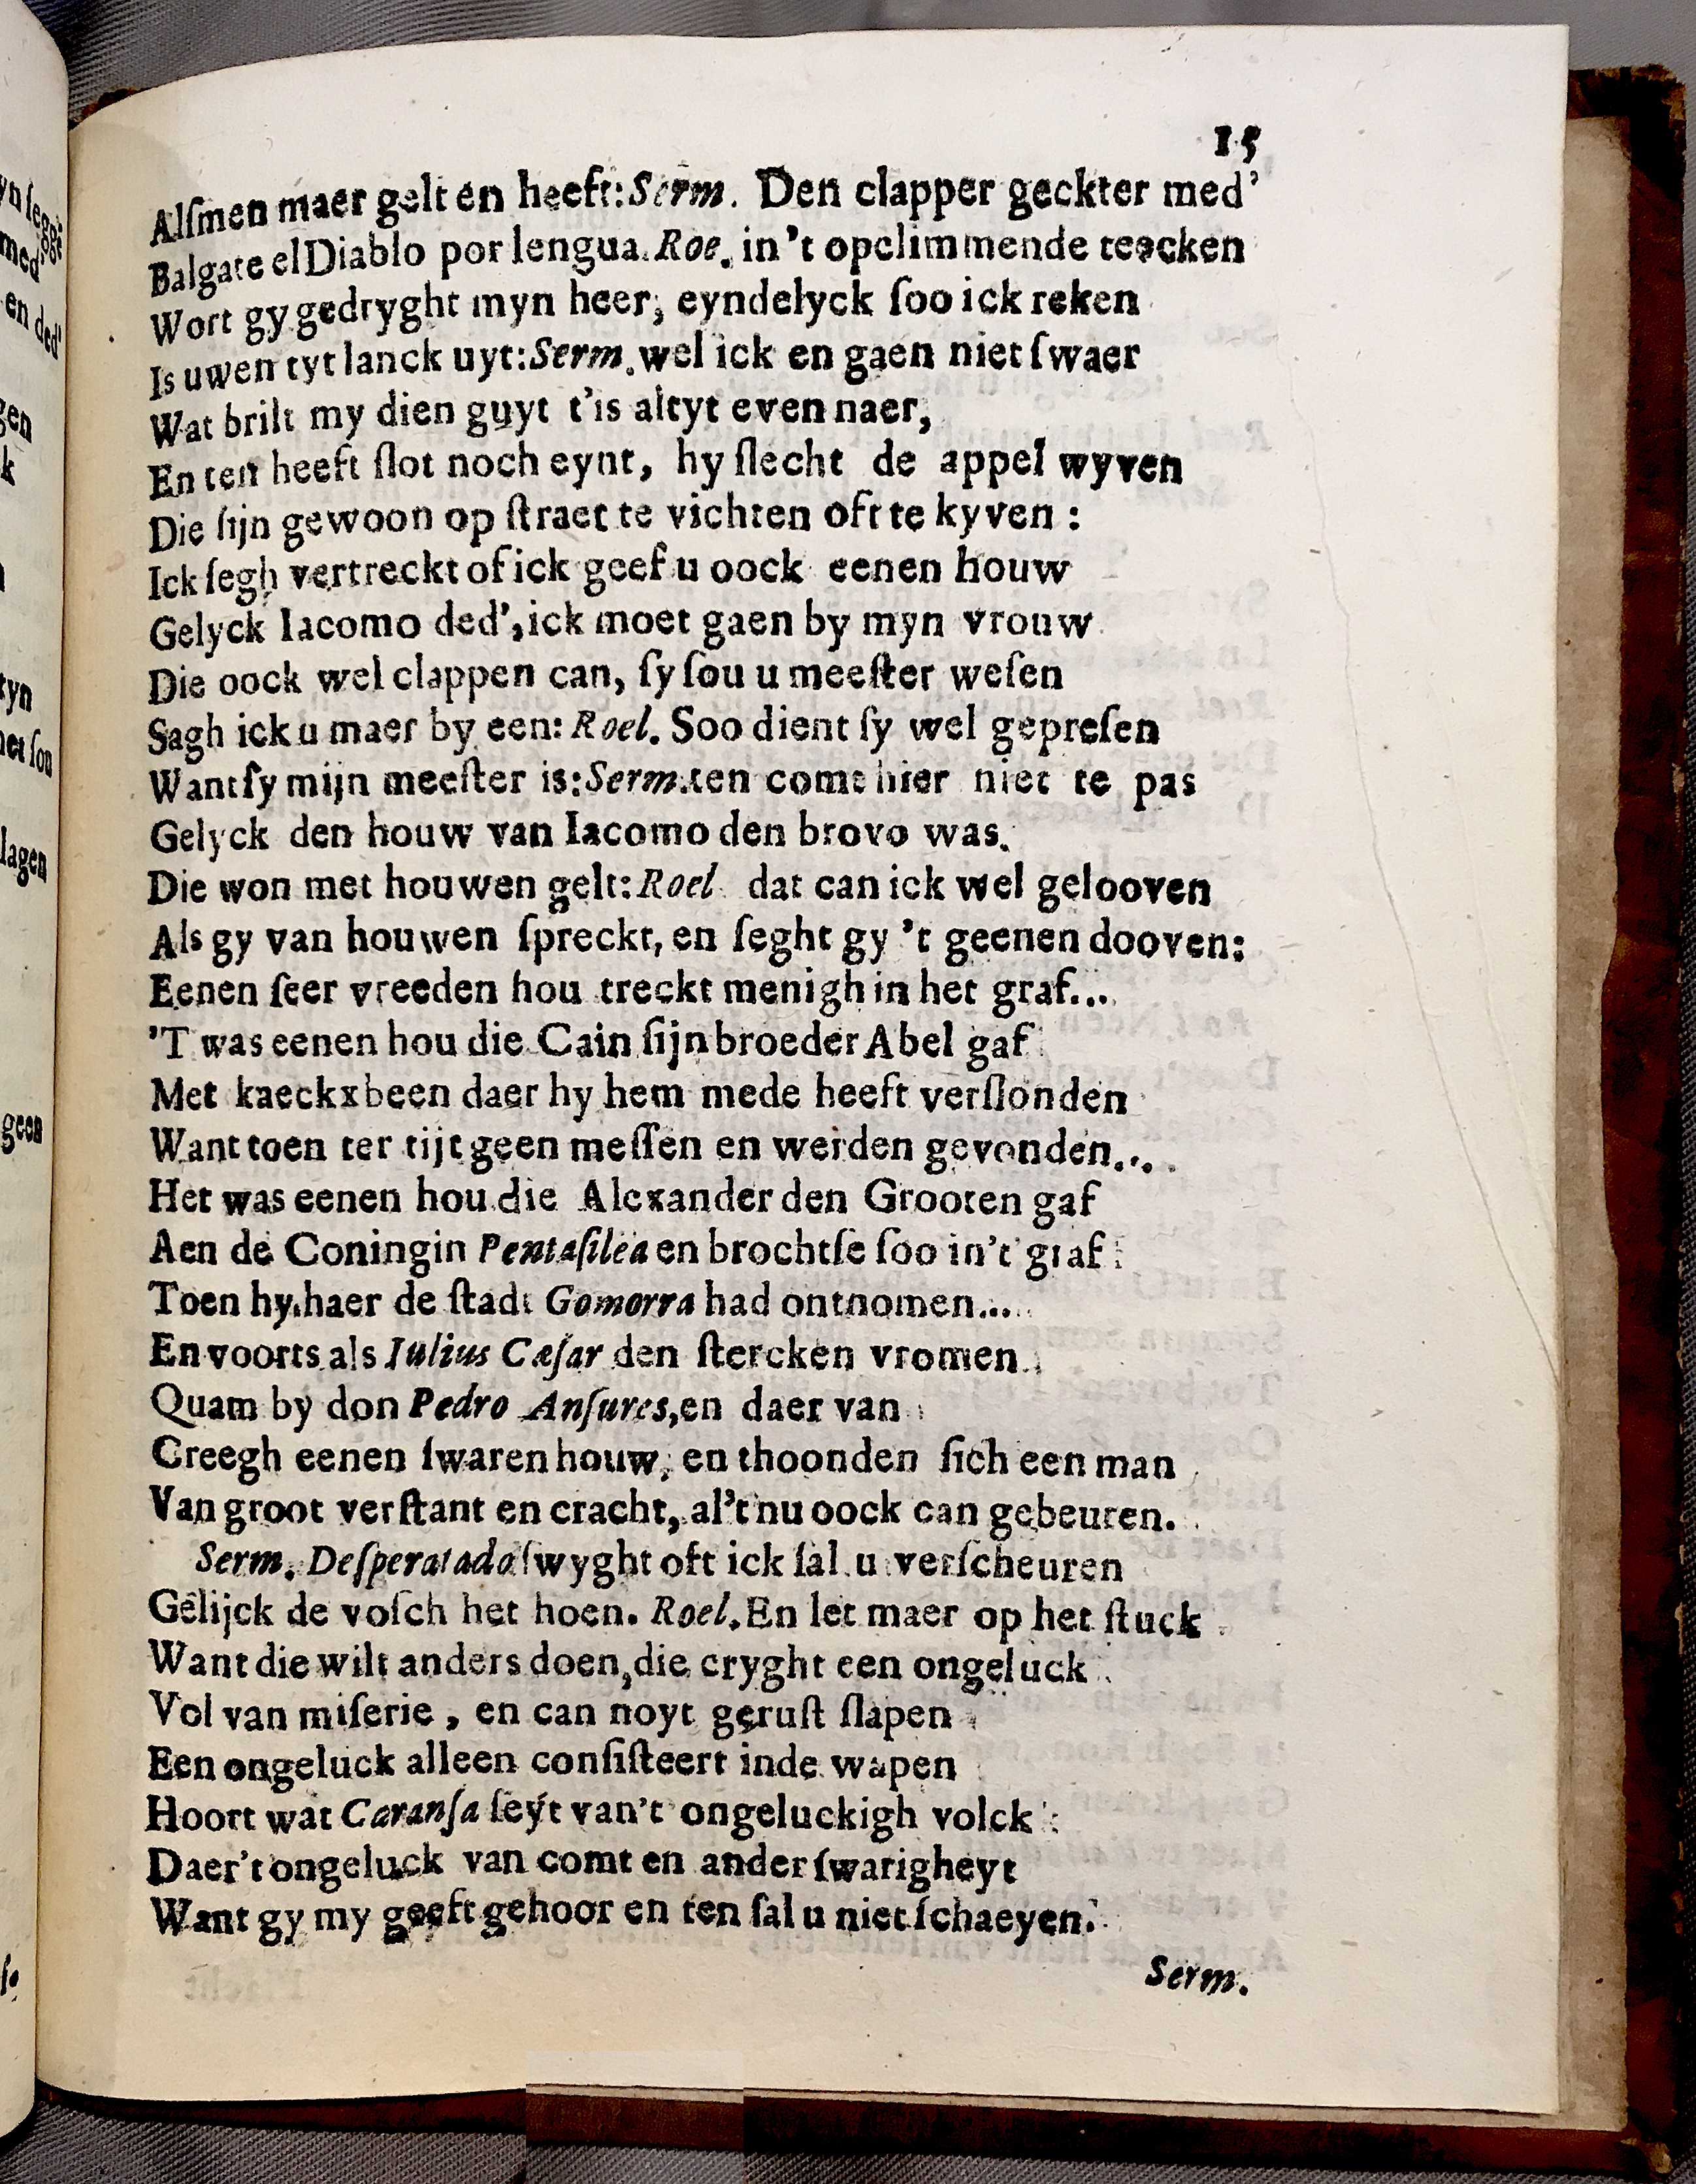 15
Alſmen maer gelt en heeft: Serm. Den clapper geckter med'
Balgate el Diablo por lengua. Roe. in 't opclimmende teecken
Wort gy gedryght myn heer, eyndelyck ſoo ick reken
Is uwen tyt lanck uyt: Serm. wel ick en gaen niet ſwaer
Wat brilt my dien guyt t'is altyt even naer,
En ten heeft ſlot noch eynt, hy ſlecht de appel wyven
Die ſijn gewoon op ſtraet te vichten oft te kyven :
Ick ſegh vertreckt of ick geef u oock eenen houw
Gelyck Iacomo ded', ick moet gaen by myn vrouw
Die oock wel clappen can, ſy ſou u meeſter weſen
Sagh ick u maer by een: Roel. Soo dient ſy wel gepreſen
Want ſy mijn meeſter is: Serm. ten comt hier niet te pas
Gelyck den houw van Iacomo den brovo was.
Die won met houwen gelt: Roel dat can ick wel gelooven
Als gy van houwen ſpreckt, en ſeght gy 't geenen dooven:
Eenen ſeer vreeden hou treckt menigh in het graf...
'T was eenen hou die Cain ſijn broeder Abel gaf
Met kaeckxbeen daer hy hem mede heeft verſlonden
Want toen ter tijt geen meſſen en werden gevonden....
Het was eenen hou die Alexander den Grooten gaf
Aen de Coningin Pentaſilea en brochtſe ſoo in't graf
Toen hy haer de ſtadt Gomorra had ontnomen...
En voorts als Iulius Cæſar den ſtercken vromen
Quam by don Pedro Anſures, en daer van
Creegh eenen ſwaren houw, en thoonden ſich een man
Van groot verſtant en cracht, al't nu oock can gebeuren.
Serm. Deſperatado ſwyght oft ick ſal u verſcheuren
Gelijck de voſch het hoen. Roel. En let maer op het ſtuck
Want die wilt anders doen, die cryght een ongeluck
Vol van miſerie, en can noyt geruſt ſlapen
Een ongeluck alleen conſiſteert inde wapen
Hoort wat Caranſa ſeyt van't ongeluckigh volck
Daer't ongeluck van comt en ander ſwarigheyt
Want gy my geeft gehoor en ten ſal u niet ſchaeyen.
Serm.